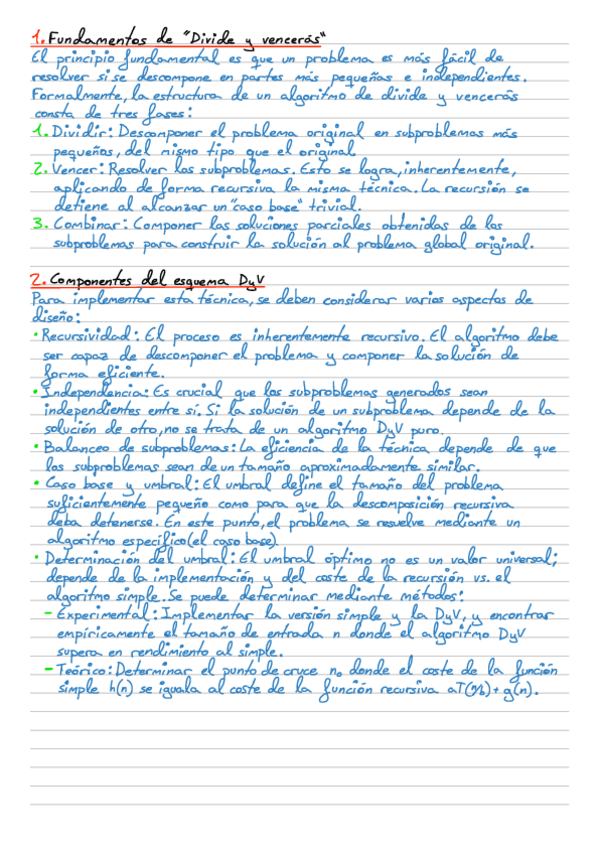 1. Fundamentos de "Divide y vencerás"
El principio fundamental es que un problema es más fácil de
resolver si se descompone en partes más pequeñas e independientes.
Formalmente, la estructura de un algoritmo de divide y vencerás
consta de tres fases:
1. Dividir: Descomponer el problema original en subproblemas más
pequeños, del mismo tipo que el original.
2. Vencer: Resolver los subproblemas. Esto se logra, inherentemente,
aplicando de forma recursiva la misma técnica. La recursión se
detiene al alcanzar un "caso base" trivial.
3. Combinar: Componer las soluciones parciales obtenidas de los
subproblemas para construir la solución al problema global original.
2. Componentes del esquema DyV
Para implementar esta técnica, se deben considerar varios aspectos de
diseño:
• Recursividad: El proceso es inherentemente recursivo. El algoritmo debe
ser capaz de descomponer el problema y componer la solución de
forma eficiente.
• Independencia: Es crucial que los subproblemas generados sean
independientes entre si. Si la solución de un subproblema depende de la
solución de otro, no se trata de un algoritmo DyV puro.
• Balanceo de subproblemas: La eficiencia de la técnica depende de que
los subproblemas sean de un tamaño aproximadamente similar.
• Caso base y umbral: El umbral define el tamaño del problema
suficientemente pequeño como para que la descomposición recursiva
deba detenerse. En este punto, el problema se resuelve mediante un
algoritmo específico (el caso base).
• Determinación del umbral: El umbral óptimo no es un valor universal;
depende de la implementación y del coste de la recursión vs. el
algoritmo simple. Se puede determinar mediante métodos:
- Experimental: Implementar la versión simple y la DyV, y encontrar
empíricamente el tamaño de entrada n donde el algoritmo DyV
supera en rendimiento al simple.
- Teórico: Determinar el punto de cruce n₀ donde el coste de la función
simple h(n) se iguala al coste de la función recursiva aT(n/b) + g(n).